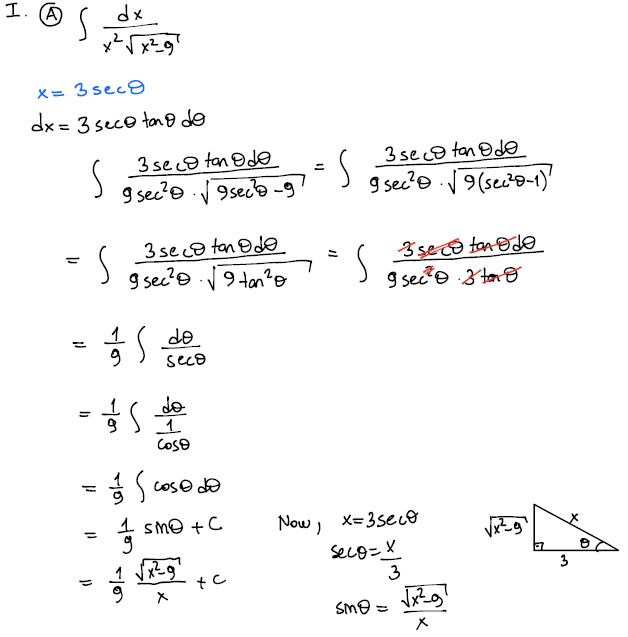 I. Ⓐ ∫ dx / (x² √(x²-9))
x = 3 secθ
dx = 3 secθ tanθ dθ
∫ 3 secθ tanθ dθ / (9 sec²θ · √(9sec²θ - 9)) = ∫ 3 secθ tanθ dθ / (9 sec²θ · √(9(sec²θ-1)))
= ∫ 3 secθ tanθ dθ / (9 sec²θ · √(9 tan²θ)) = ∫ 3 secθ tanθ dθ / (9 sec²θ · 3 tanθ)
= 1/9 ∫ dθ / secθ
= 1/9 ∫ dθ / (1/cosθ)
= 1/9 ∫ cosθ dθ
= 1/9 sinθ + C
= 1/9 √(x²-9) / x + C
Now, x = 3 secθ
secθ = x/3
sinθ = √(x²-9) / x
√(x²-9)
x
θ
3